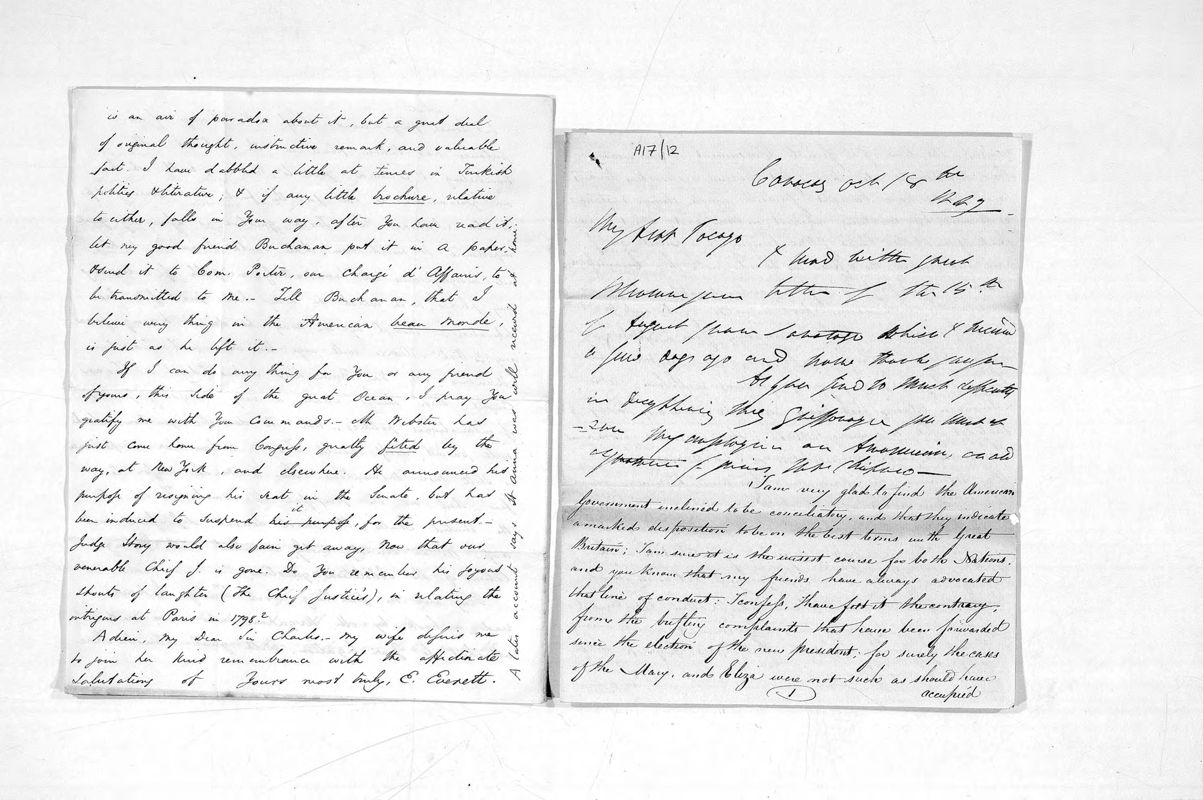 is an air of paradox about it, but a great deal
of original thought, instructive remark, and valuable
fact. I have dabbled a little at times in Turkish
politics & literature; & if any little brochure, relative
to either, falls in Your way, after You have read it,
let my good friend Buchanan put it in a paper,
& send it to Com. Porter, our Chargé d'Affaires, to
be transmitted to me. – Tell Buchanan, that I
believe every thing in the American beau monde,
is just as he left it. –
If I can do any thing for You or any friend
of yours, this side of the great Ocean, I pray You
gratify me with Your Commands. – Mr Webster has
just come home from Congress, greatly fêted by the
way, at New York, and elsewhere. He announced his
purpose of resigning his seat in the Senate, but has
been induced to suspend it his purpose, for the present –
Judge Story would also fain get away, now that our
venerable Chief J. is gone. Do You remember his joyous
shouts of laughter (the Chief Justice's), in relating the
intrigues at Paris in 1798?
Adieu, my Dear Sir Charles. – My wife desires me
to join her kind remembrance with the affectionate
Salutations of Yours most truly, E. Everett.
A later account says St Anna was well received at home.
A17/12
Oct 18th
My dear
I read with great
letter of the 15th
of August from Saratoga which I
a few days ago and
in decyphering this you must
an American, and
I am very glad to find the American
Government inclined to be conciliatory, and that they indicate
a marked disposition to be on the best terms with Great
Britain; I am sure it is the wisest course for both Nations,
and you know that my friends have always advocated
that line of conduct: I confess, I have fear'd it the contrary,
from the complaints that have been forwarded
since the election of the new president, for surely the cases
of the Mary, and Eliza were not such as should have
occupied